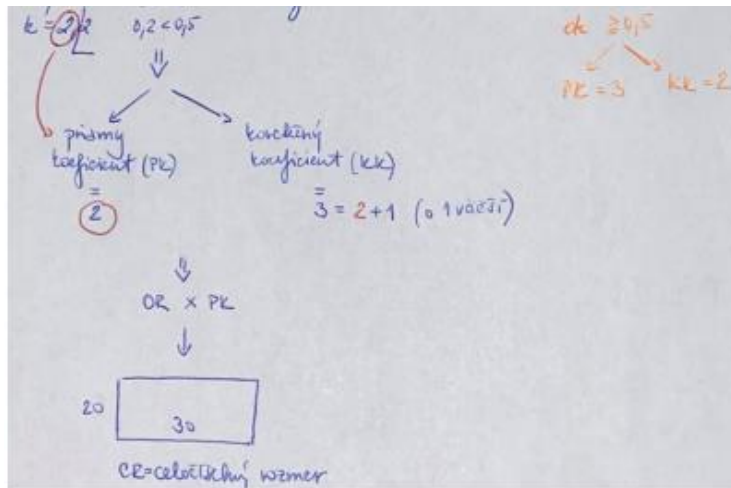 k = 2,2 0,2 < 0,5
ak ≥ 0,5
PK = 3 KK = 2
priamy
koeficient (PK)
=
2
koeficient (KK)
=
3 = 2+1 (o 1 väčší)
OR × PK
20
30
CR = celočíselný rozmer